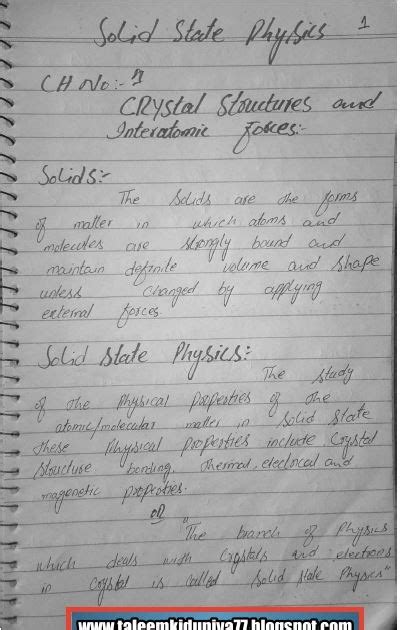 Solid State Physics 1
CH No:- "1
CRystal Structures and
Interatomic Forces:-
Solids:-
The Solids are the forms
of matter in which atoms and
molecules are strongly bound and
maintain definite volume and shape
unless changed by applying
external forces.
Solid State Physics:-
The study
of the Physical properties of the
atomic/molecular matter in Solid State
these physical properties include Crystal
structure bonding, thermal, electrical and
magenetic properties.
OR
"The branch of Physics
which deals with Crystals and electrons
in crystal is called Solid State Physics"
www.taleemkiduniya77.blogspot.com